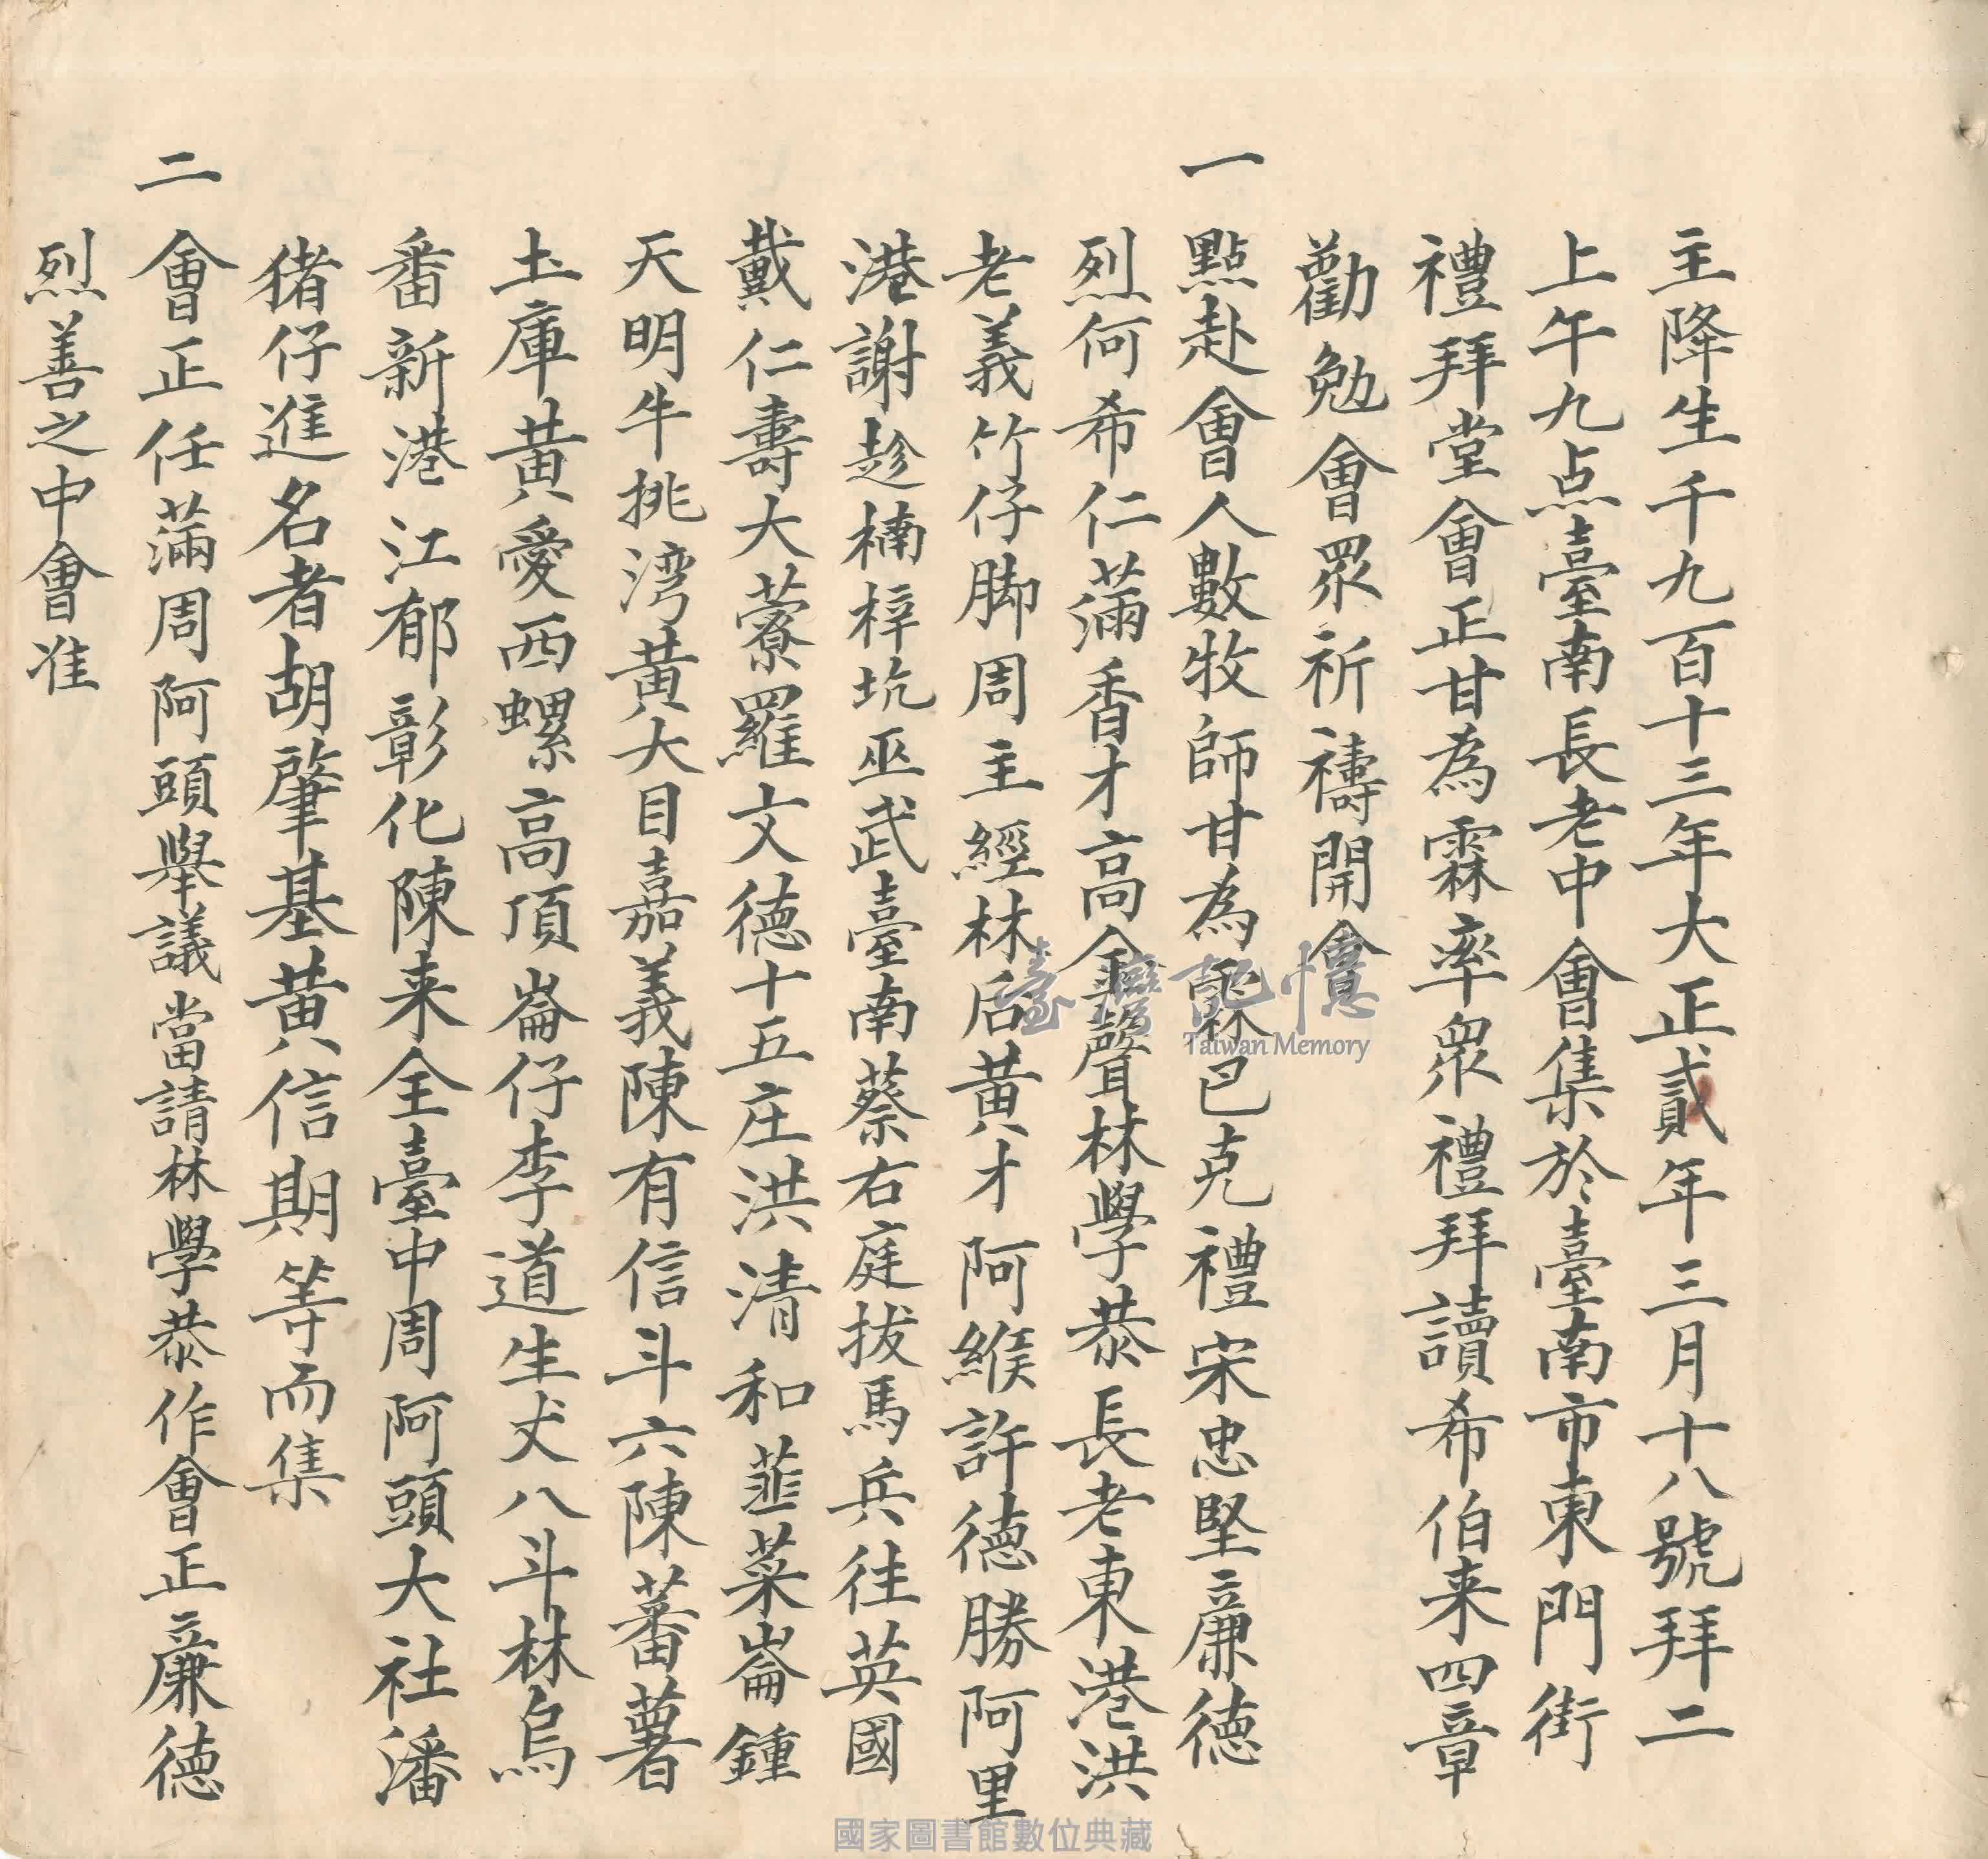 主降生千九百十三年大正貳年三月十八號拜二
上午九点臺南長老中會集於臺南市東門街
禮拜堂會正甘為霖率眾禮拜讀希伯来四章
勸勉會眾祈禱開會
一 點赴會人數牧師甘為霖巴克禮宋忠堅廉德
烈何希仁滿香才高金聲林學恭長老東港洪
老義竹仔脚周主經林后黃才阿緱許德勝阿里
港謝趁楠梓坑巫武臺南蔡右庭拔馬兵往英國
戴仁壽大藔羅文德十五庄洪清和韮菜崙鍾
天明牛挑湾黃大目嘉義陳有信斗六陳蕃薯
土庫黃愛西螺高頂崙仔李道生丈八斗林烏
番新港江郁彰化陳来全臺中周阿頭大社潘
猪仔進名者胡肇基黃信期等而集
二 會正任滿周阿頭舉議當請林學恭作會正廉德
烈善之中會准
臺灣記憶
Taiwan Memory
國家圖書館數位典藏